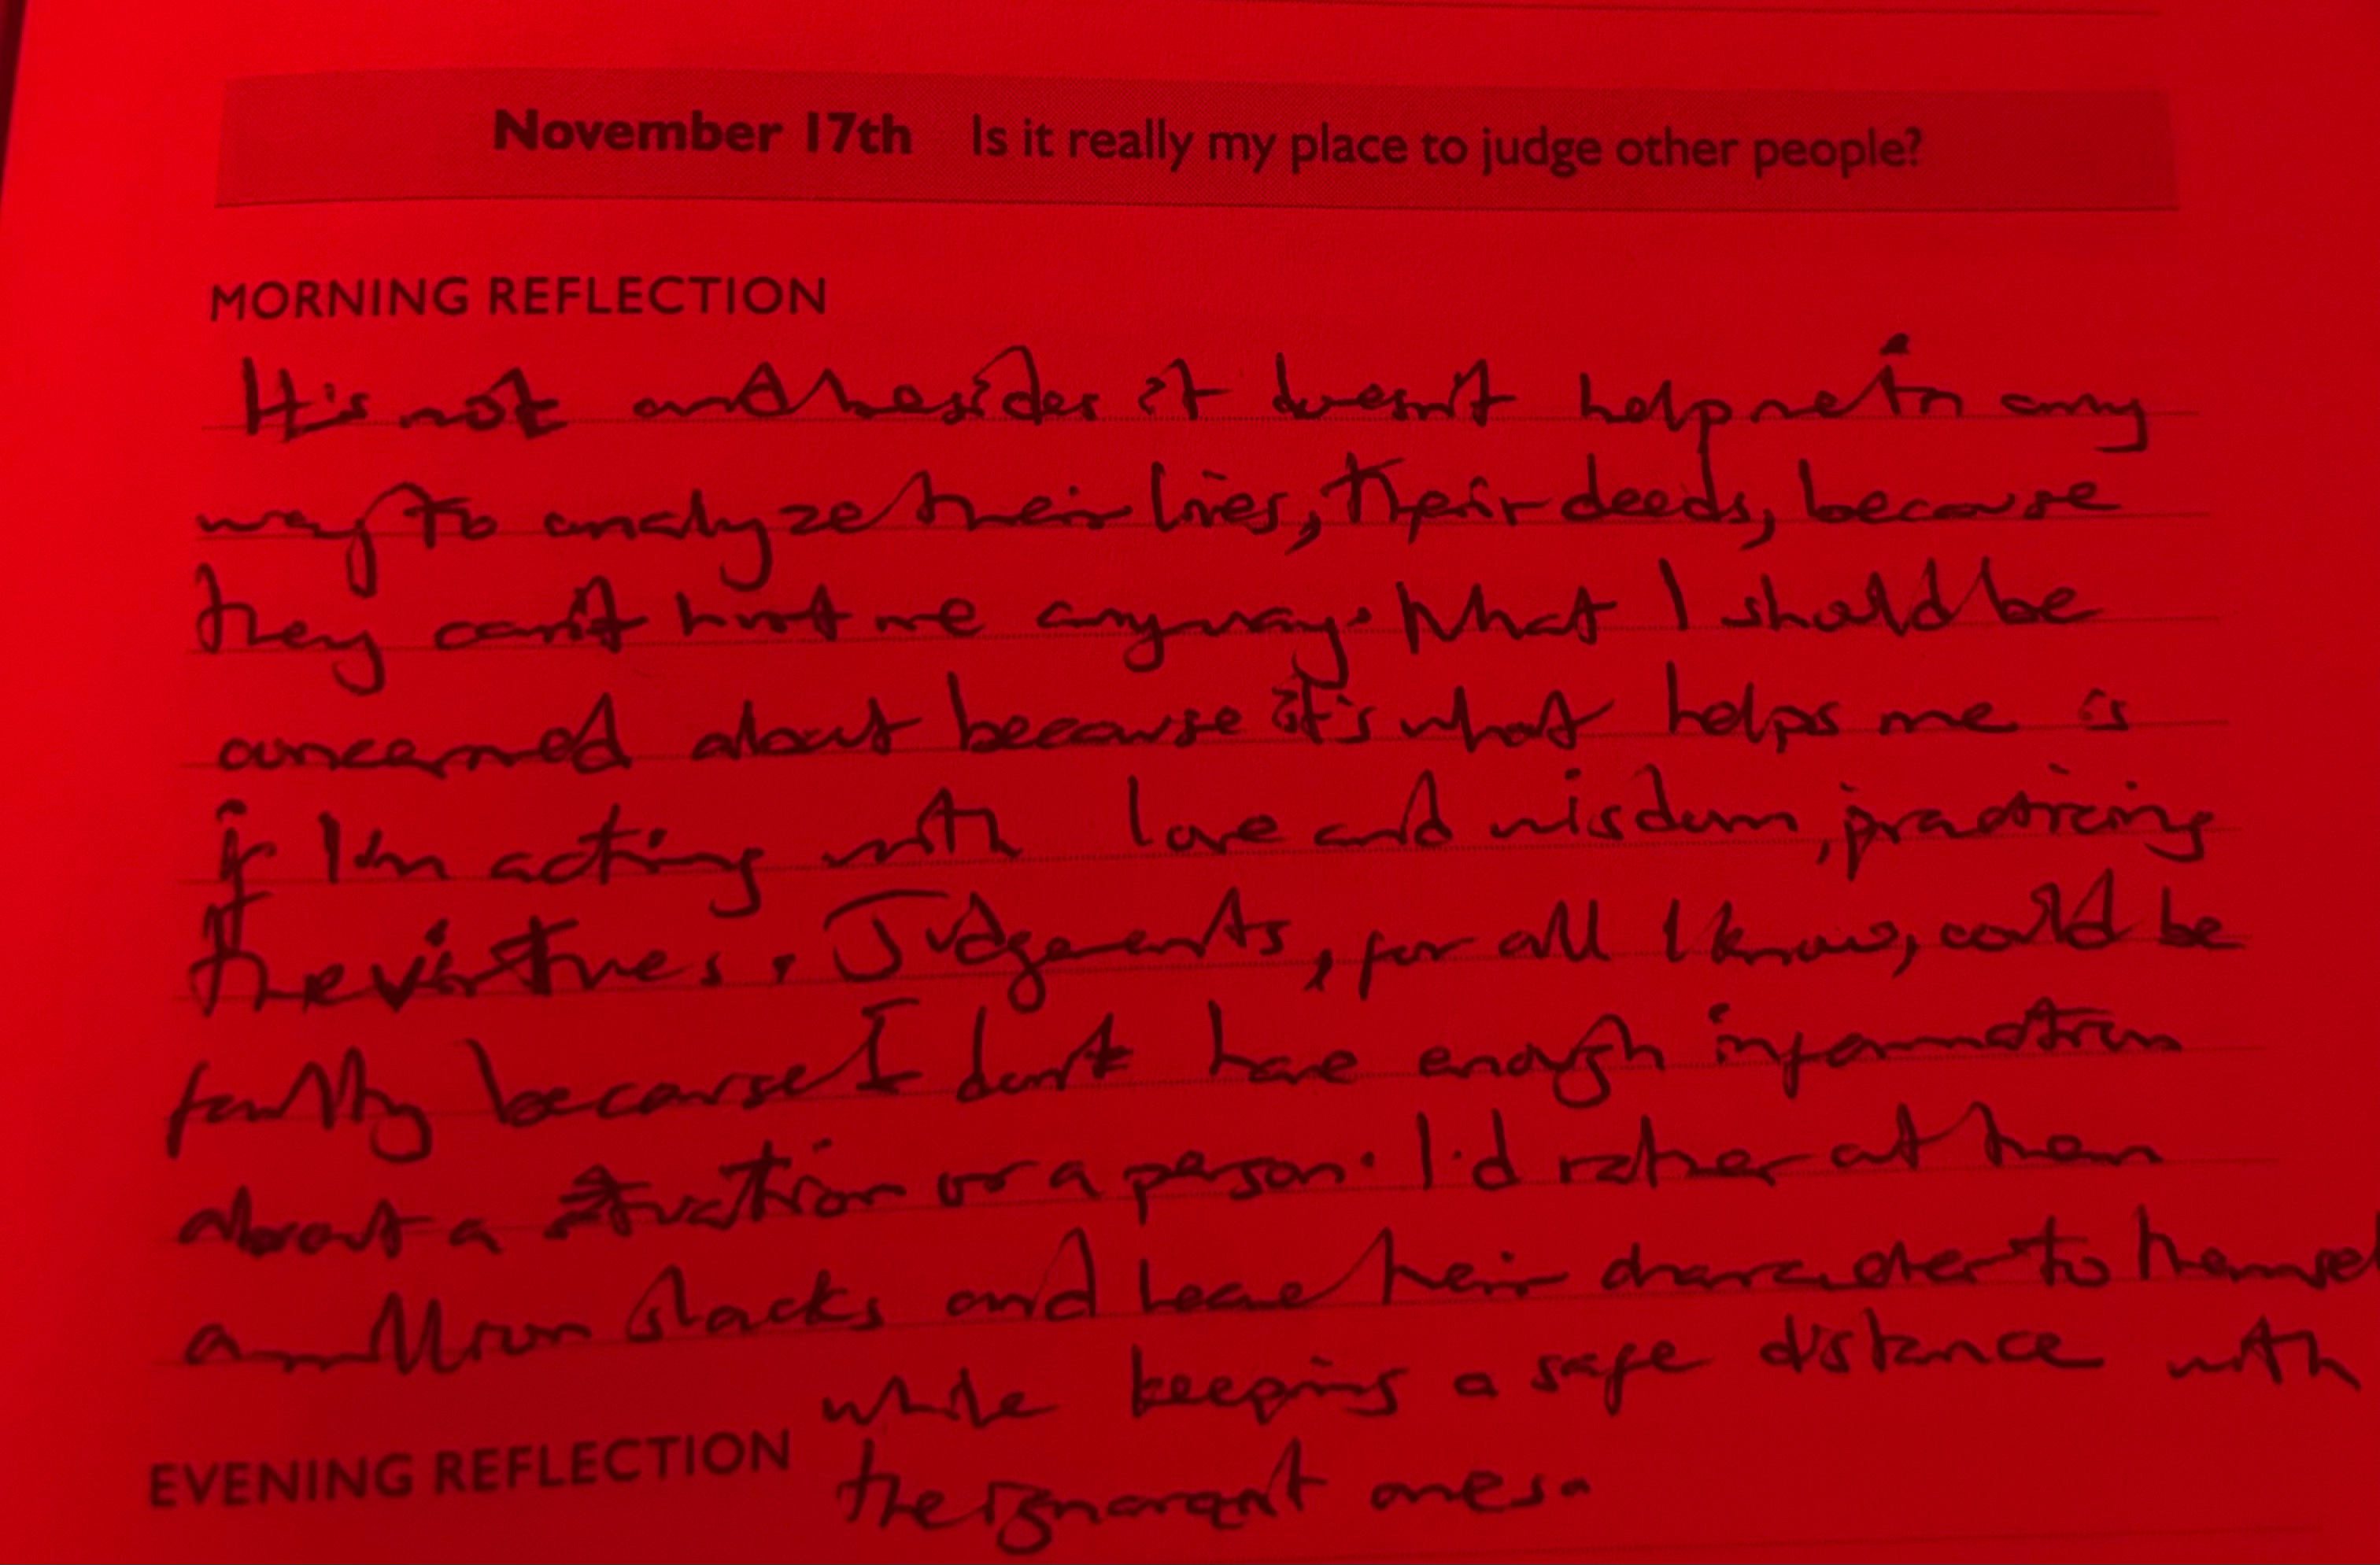 November 17th Is it really my place to judge other people?
MORNING REFLECTION
It's not and besides it doesn't help me in any
way to analyze their lives, their deeds, because
they can't hurt me anyway. What I should be
concerned about because it's what helps me is
if I'm acting with love and wisdom, practicing
the virtues. Judgements, for all I know, could be
faulty because I don't have enough information
about a situation or a person. I'd rather cut them
a million slacks and leave their character to themsel
while keeping a safe distance with
EVENING REFLECTION the ignorant ones.